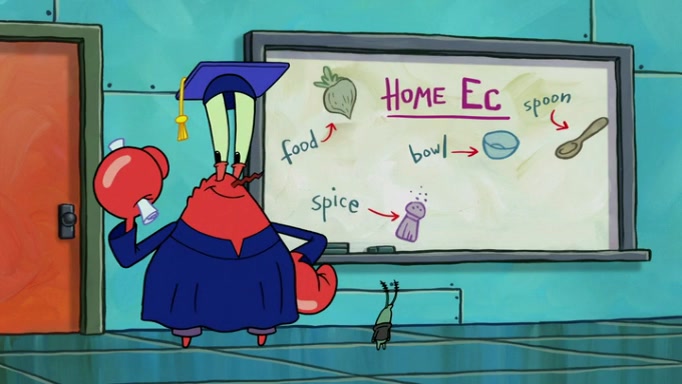 Home Ec
spoon
food
bowl
spice